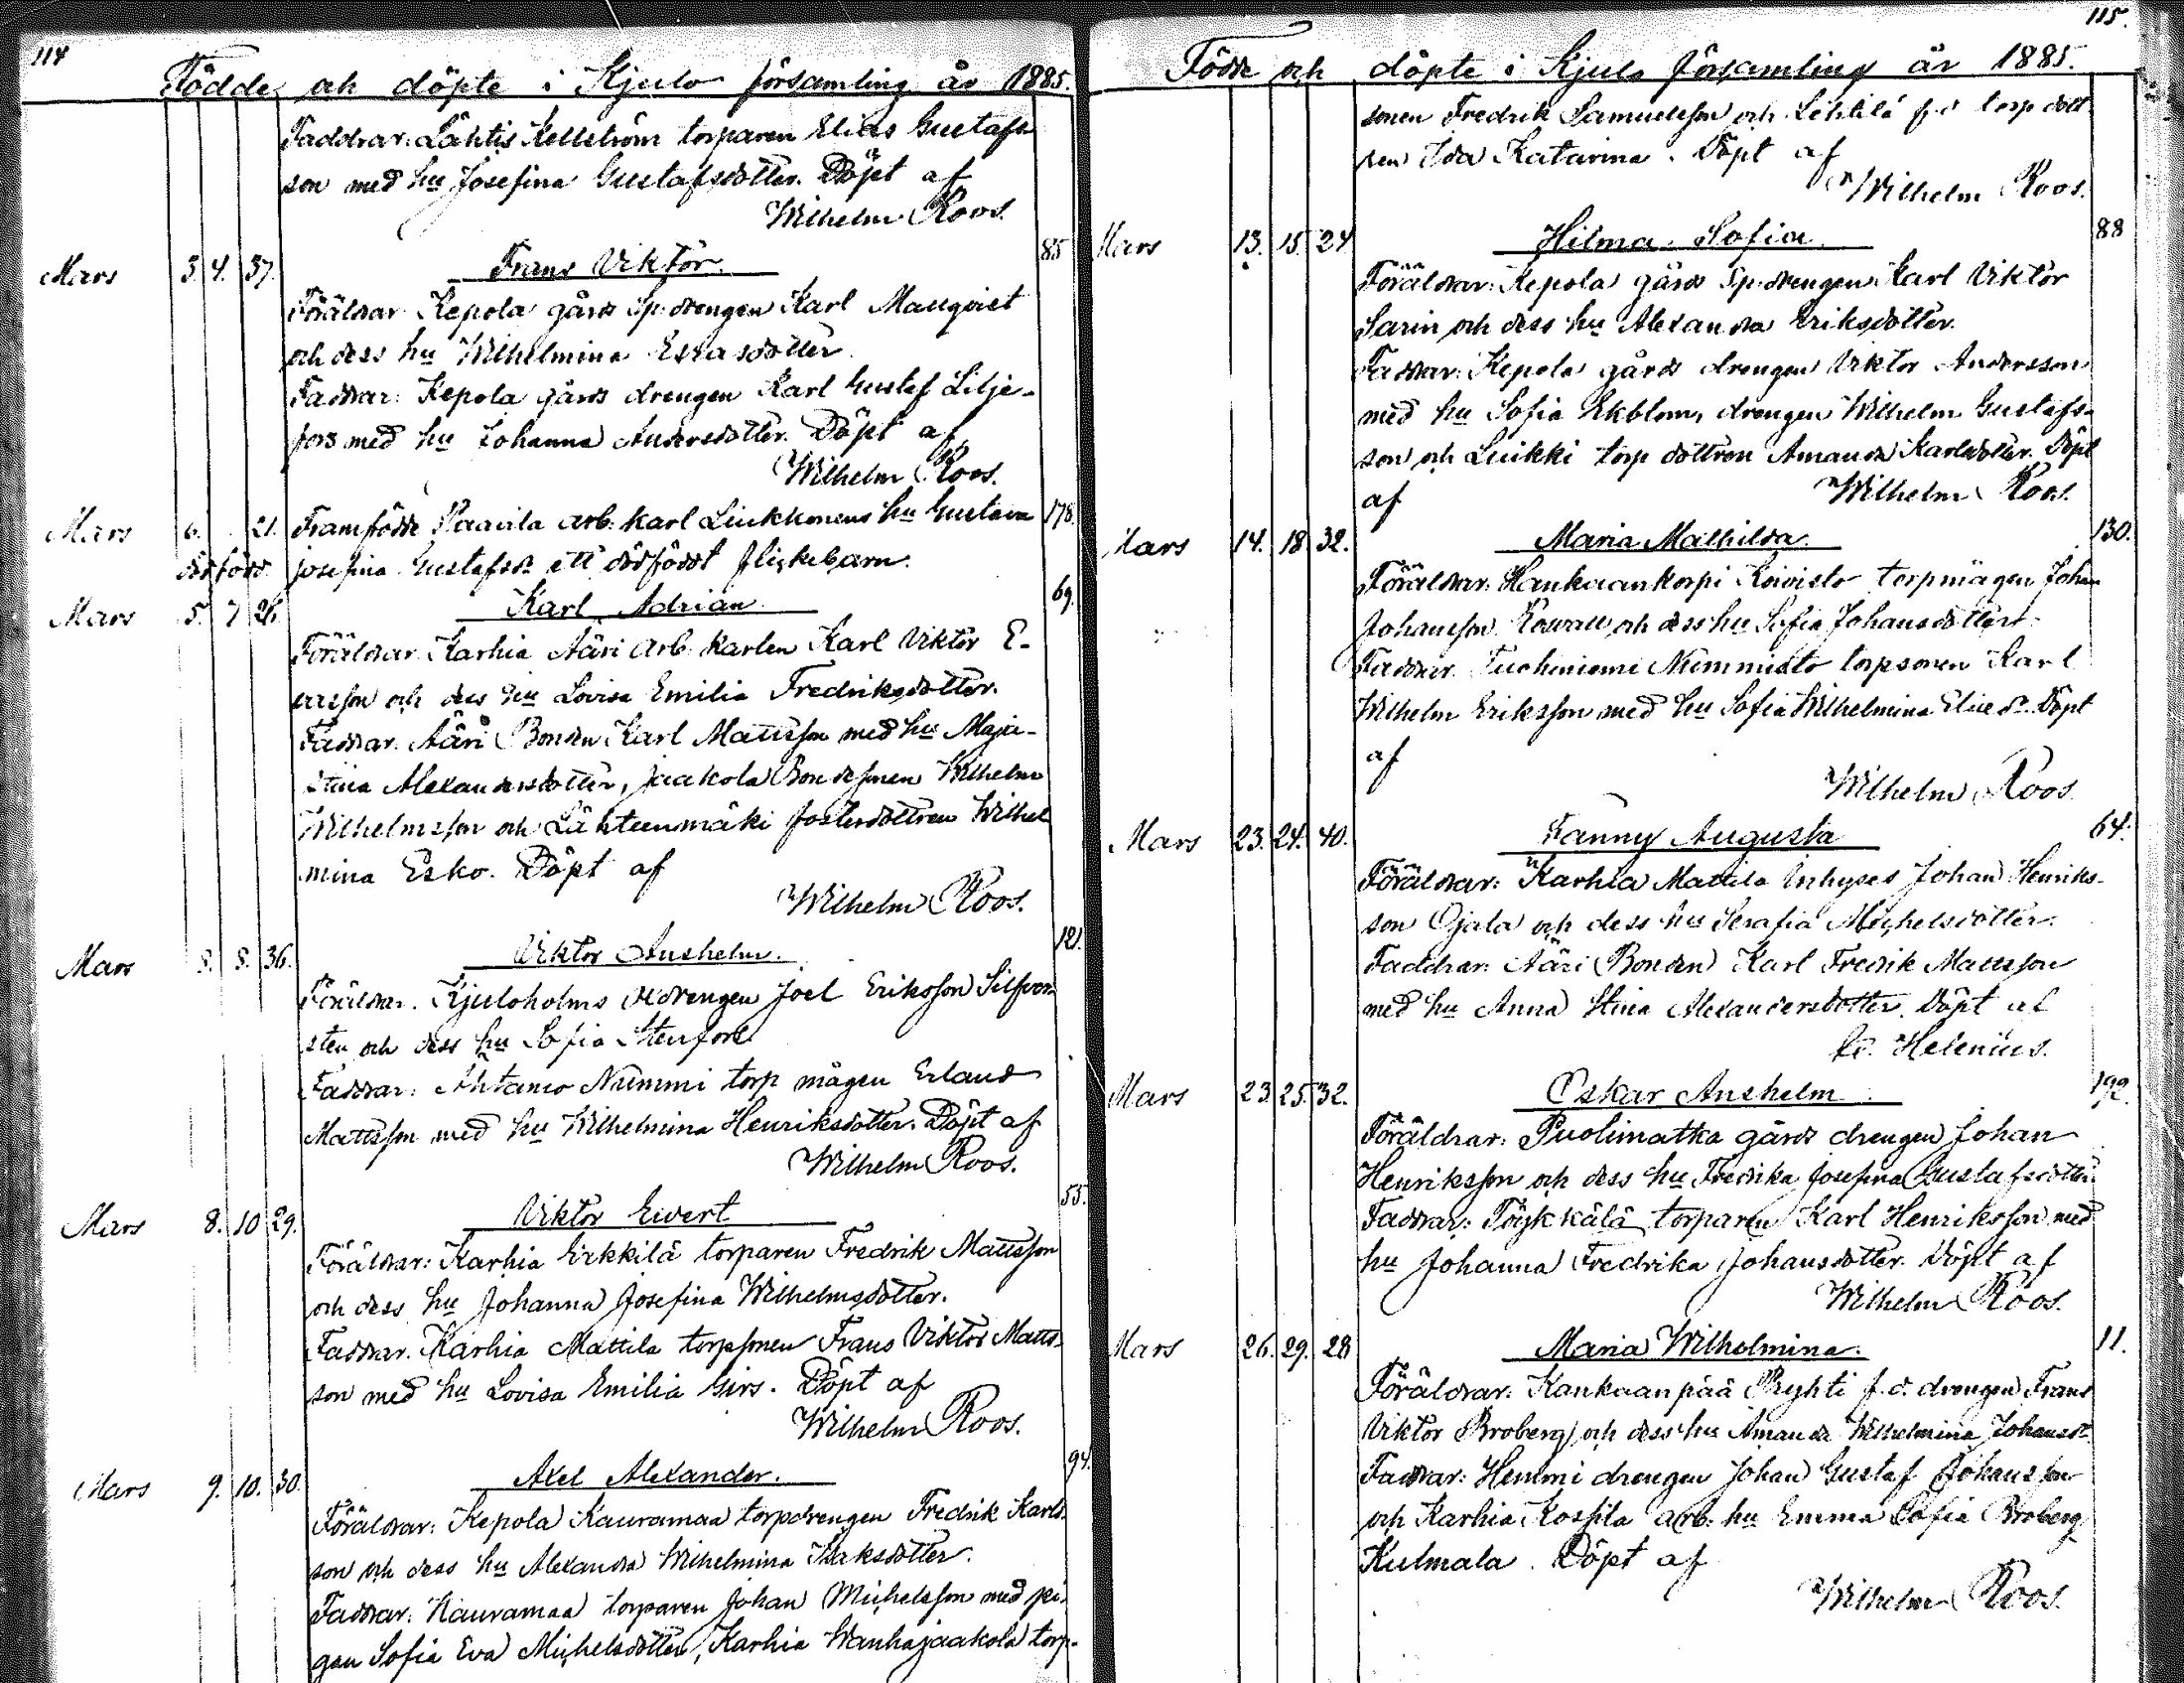 114
Födde och döpte i Kjulo församling år 1885.
Faddrar: Lähtis Kellström torparen Elias Gustafs
son med hu Josefina Gustafsdotter. Döpt af
Wilhelm Roos.
Mars 3. 4. 37. Frans Viktor. 85
Föräldrar: Kepola gårds Sp. drengen Karl Manqvist
och dess hu Wilhelmina Esaiasdotter
Faddrar: Kepola gårds drengen Karl Gustaf Lilje-
fors med hu Johanna Andersdotter. Döpt af
Wilhelm Roos.
Mars 6. 21. Framfödde Paavila arb: Karl Liukkonens hu Gustava 178.
dödfödd. Josefina Gustafsdr ett dödfödt flickebarn.
Mars 5. 7 26. Karl Adrian. 69.
Föräldrar Karhia Ääri arb. karlen Karl Viktor E-
ricsson och dess hu Lovisa Emilia Fredriksdotter.
Faddrar. Ääri Bonden Karl Mattsson med hu Maja-
Stina Alexandersdotter, Jaakola Bondesonen Wilhelm
Wilhelmsson och Lähteenmäki fosterdottren Wilhel
mina Esko. Döpt af
Wilhelm Roos.
Mars 8. 8. 36. Viktor Anshelm. 121.
Föräldrar. Kjuloholms drengen Joel Eriksson Silfver
sten och dess hu Sofia Stenfors
Faddrar: Ahtamo Nummi torp mågen Erland
Mattsson med hu Wilhelmina Henriksdotter. Döpt af
Wilhelm Roos.
Mars 8. 10 29. Viktor Evert 55.
Föräldrar: Karhia Erkkilä torparen Fredrik Mattsson
och dess hu Johanna Josefina Wilhelmsdotter.
Faddrar. Karhia Mattila torpsonen Frans Viktor Matts-
son med hu Lovisa Emilia Girs. Döpt af
Wilhelm Roos.
Mars 9. 10. 30. Axel Alexander. 94.
Föräldrar: Kepola Kauramaa torpdrengen Fredrik Karls-
son och dess hu Alexandra Wilhelmina Isaksdotter.
Faddrar: Kauramaa torparen Johan Michelsson med pi-
gan Sofia Eva Michelsdotter, Karhia Wanhajaakola torp-
115.
Födde och döpte i Kjulo församling år 1885.
sonen Fredrik Samuelsson och Lehtilä f.d. torp dott
ren Ida Katarina. Döpt af
Wilhelm Roos.
Mars 13. 15. 24 Hilma Sofia 88
Föräldrar: Kepola gårds Sp. drengen Karl Viktor
Sarin och dess hu Alexandra Eriksdotter.
Faddrar: Kepola gårds drengen Viktor Andersson
med hu Sofia Ekblom, drengen Wilhelm Gustafs-
son och Luikki torp dottren Amanda Karlsdotter. Döpt
af Wilhelm Roos.
Mars 14. 18 32. Maria Mathilda. 130.
Föräldrar: Hankaankorpi Koivisto torpmågen Johan
Johansson Rowall och dess hu Sofia Johansdotter.
Faddrar. Tuohiniemi Nummisto torpsonen Karl
Wilhelm Eriksson med hu Sofia Wilhelmina Elias dr. Döpt
af
Wilhelm Roos.
Mars 23. 24. 40. Fanny Augusta 64.
Föräldrar: Karhia Mattila Inhyses Johan Henriks-
son Ojala och dess hu Serafia Michelsdotter.
Faddrar: Ääri Bonden Karl Fredrik Mattsson
med hu Anna Stina Alexandersdotter. Döpt af
Helenius.
Mars 23. 25. 32. Oskar Anshelm 192.
Föräldrar: Puolimatka gårds drengen Johan
Henriksson och dess hu Fredrika Josefina Gustafsdotter.
Faddrar: Töykkälä torparen Karl Henriksson med
hu Johanna Fredrika Johansdotter. Döpt af
Wilhelm Roos.
Mars 26. 29. 28 Maria Wilhelmina. 11.
Föräldrar: Kankaanpää Pryhti f.d. drengen Frans
Viktor Broberg och dess hu Amanda Wilhelmina Johansdr.
Faddrar: Hemmi drengen Johan Gustaf Johansson
och Karhia Koskila arb. hu Emma Sofia Broberg
Kulmala. Döpt af
Wilhelm Roos.